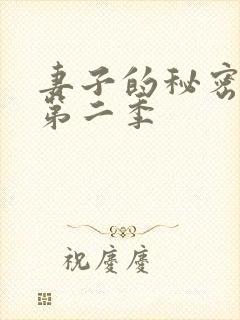 妻子的秘密
第二季
祝慶慶